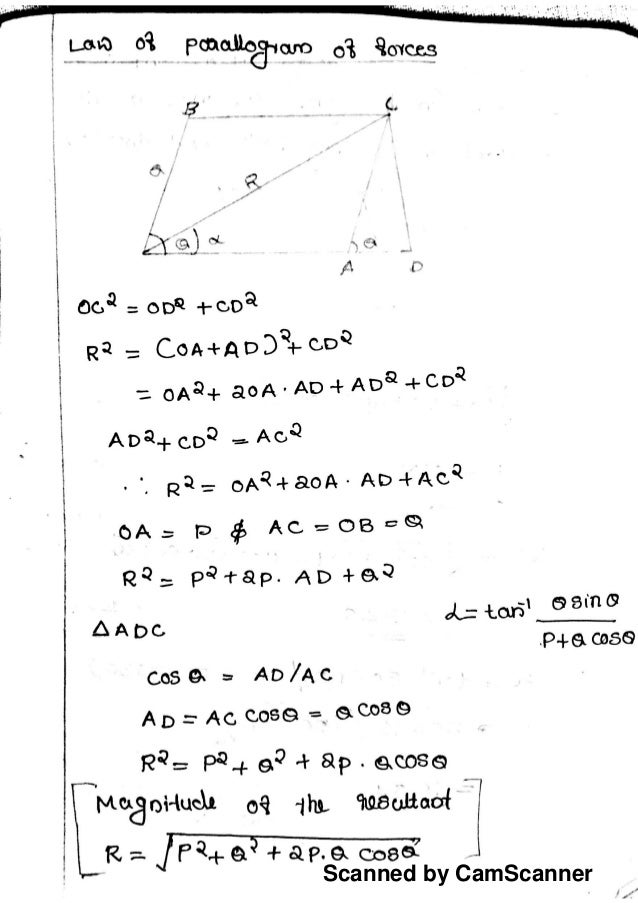 Law of Parallogram of forces
B C
Q R
θ α θ
A D
OC² = OD² + CD²
R² = (OA+AD)² + CD²
= OA² + 2OA · AD + AD² + CD²
AD² + CD² = AC²
∴ R² = OA² + 2OA · AD + AC²
OA = P & AC = OB = Q
R² = P² + 2P. AD + Q²
α = tan⁻¹ Q sin θ / P+Q cos θ
△ ADC
cos θ = AD/AC
AD = AC cos θ = Q cos θ
R² = P² + Q² + 2P . Q cos θ
Magnitude of the resultant
R = √P² + Q² + 2P. Q cos θ
Scanned by CamScanner